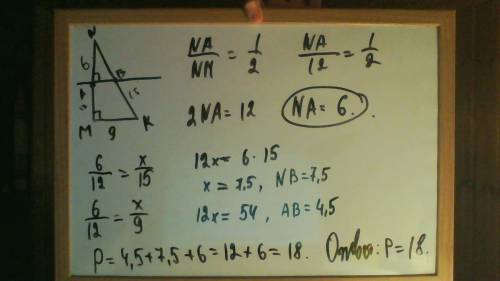 N
6
B
A
15
M
9
K
NA/NM = 1/2
NA/12 = 1/2
2NA = 12
NA = 6.
6/12 = x/15
12x = 6 · 15
x = 7.5, NB = 7,5
6/12 = x/9
12x = 54, AB = 4,5
P = 4,5 + 7,5 + 6 = 12 + 6 = 18. Ответ: P = 18.